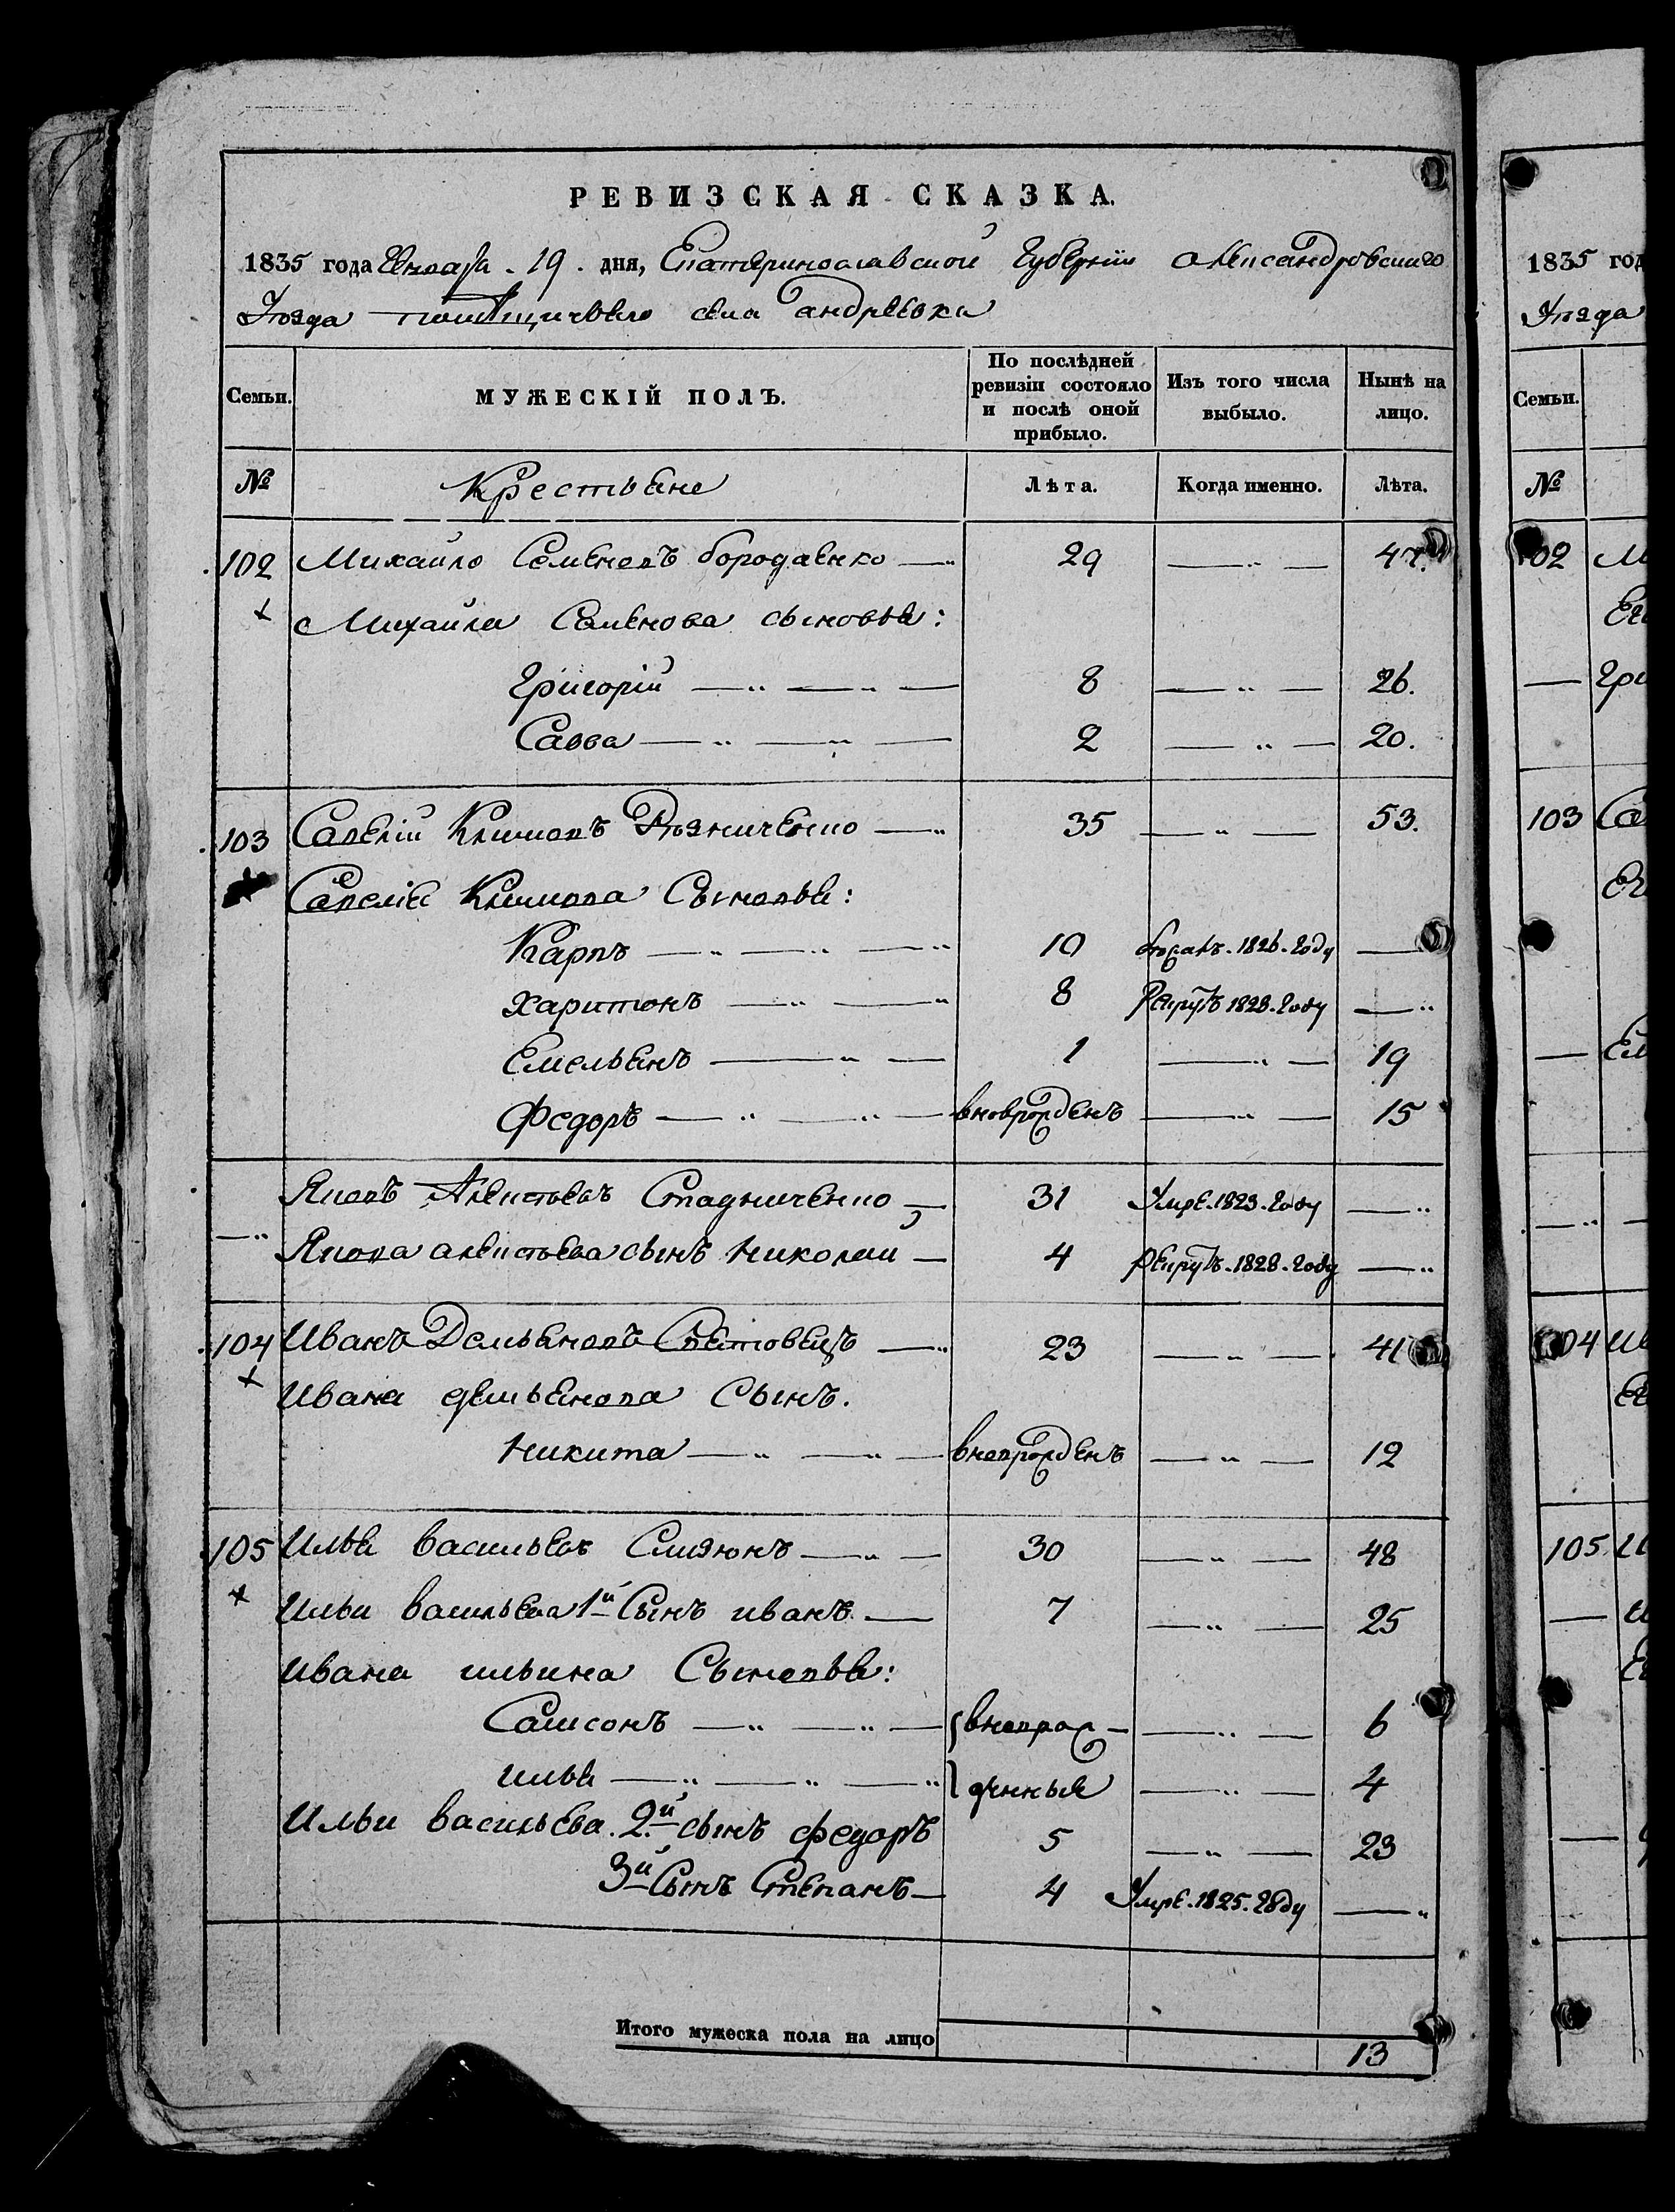 РЕВИЗСКАЯ СКАЗКА.
1835 года Генваря . 19 . дня, Екатеринославской Губернiи Александровскаго
Уѣзда помѣщичьяго села Андреевки
Семьи. МУЖЕСКІЙ ПОЛЪ. По послѣдней ревизіи состояло и послѣ оной прибыло. Изъ того числа выбыло. Нынѣ на лицо.
№ Крестьяне Лѣта. Когда именно. Лѣта.
102 Михайло Семеновъ бородаенко 29 47.
Михайла Семенова сыновья:
Григорiй 8 26.
Савва 2 20.
103 Савелiй Климовъ Рѣзниченко 35 53.
Савелiя Климова Сыновья:
Карпъ 10 1826. году
Харитонъ 8 Рекрутъ 1828. году
Емельянъ 1 19
Федоръ вноврожденъ 15
Яковъ Стадниченко 31 Умре. 1823. году
Якова сынъ Николай 4 рекрутъ. 1828. году
104 Иванъ Демьяновъ 23 41
Ивана демьянова Сынъ.
Никита вноврожденъ 12
105 Илья васильевъ 30 48
Ильи васильева 1й Сынъ иванъ 7 25
Ивана ильина Сыновья:
Самсонъ вноврож- 6
илья денныя 4
Ильи васильева. 2.й сынъ федоръ 5 23
3й Сынъ Степанъ 4 Умре. 1825. году
Итого мужеска пола на лицо 13
1835 год
Уѣзда
Семьи.
№
102 М
Ег
Гри
103 Са
Ег
Ем
104 Ив
Ег
105 И